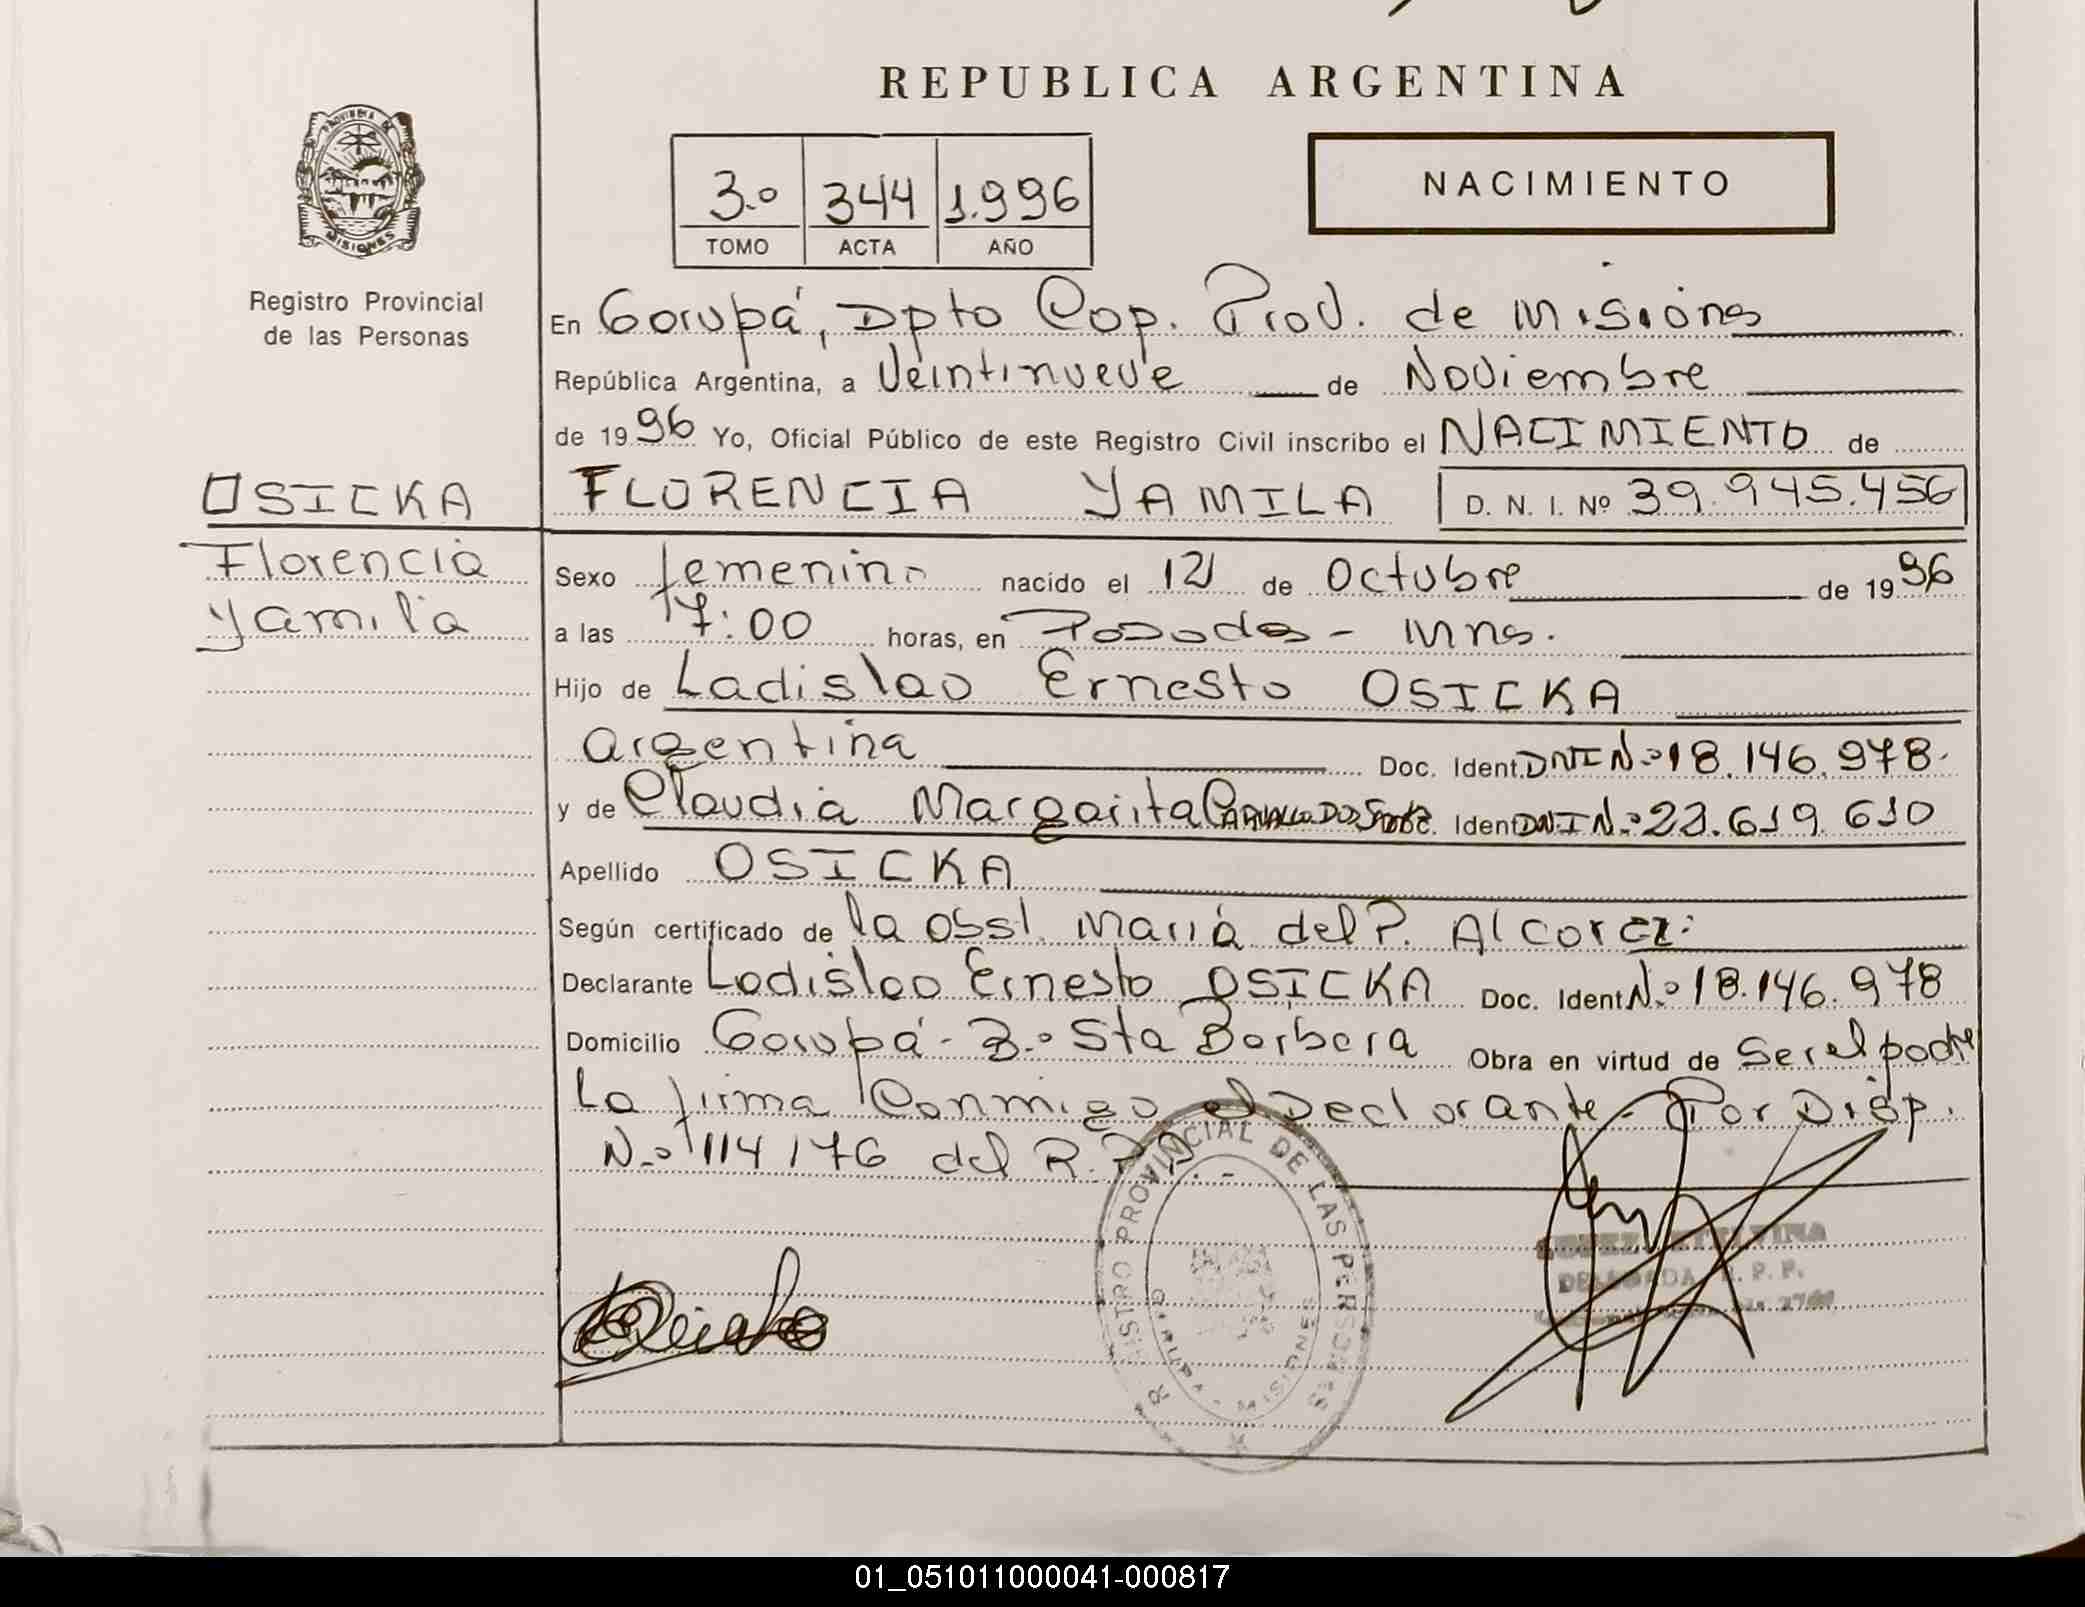 REPUBLICA ARGENTINA
PROVINCIA DE
MISIONES
Registro Provincial
de las Personas
3.º 344 1.996
TOMO ACTA AÑO
NACIMIENTO
En Garupá, Dpto Cap. Prov. de Misiones
República Argentina, a Veintinueve de Noviembre
de 1996 Yo, Oficial Público de este Registro Civil inscribo el NACIMIENTO de
OSICKA
Florencia
Yamila
FLORENCIA YAMILA D. N. I. Nº 39.945.456
Sexo femenino nacido el 12 de Octubre de 1996
a las 17:00 horas, en Posadas - Mns.
Hijo de Ladislao Ernesto OSICKA
argentina Doc. Ident. DNI N.º 18.146.978.
y de Claudia Margarita Ident DNI N.º 23.619.610
Apellido OSICKA
Según certificado de la Obst. María del P. Alcaraz:
Declarante Ladislao Ernesto OSICKA Doc. Ident N.º 18.146.978
Domicilio Garupá - B.º Sta Barbara Obra en virtud de Ser el padre
La firma Conmigo el Declarante - Por Disp.
N.º 114/76 del R.P.P. -
REGISTRO PROVINCIAL DE LAS PERSONAS
GARUPA - MISIONES
DELEGADA R. P. P.
01_051011000041-000817